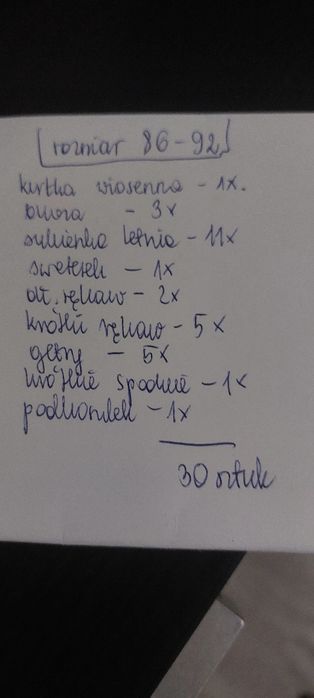 rozmiar 86-92
kurtka wiosenna - 1x.
bluza - 3x
sukienka letnia - 11x
sweterek - 1x
dł. rękaw - 2x
krótki rękaw - 5x
getry - 5x
krótkie spodnie - 1x
podkoszulek - 1x
30 sztuk